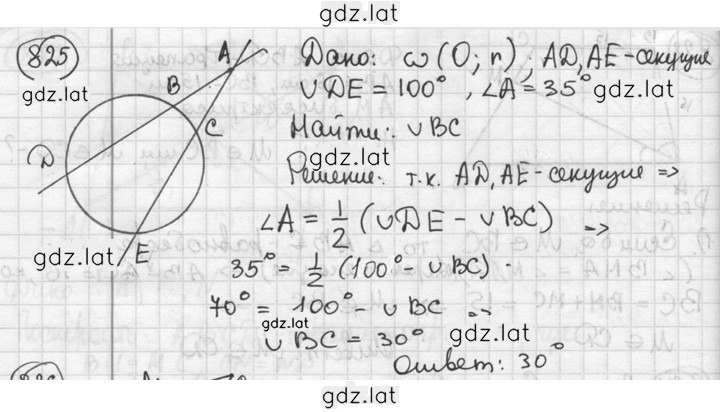 gdz.lat
825
A
B
C
D
E
Дано: ω(O; r), AD, AE - секущие
∪DE = 100°, ∠A = 35°
gdz.lat
gdz.lat
Найти: ∪BC
gdz.lat
Решение: т.к. AD, AE - секущие =>
∠A = 1/2 (∪DE - ∪BC) =>
gdz.lat
35° = 1/2 (100° - ∪BC)
70° = 100° - ∪BC =>
gdz.lat
∪BC = 30°
gdz.lat
Ответ: 30°
gdz.lat